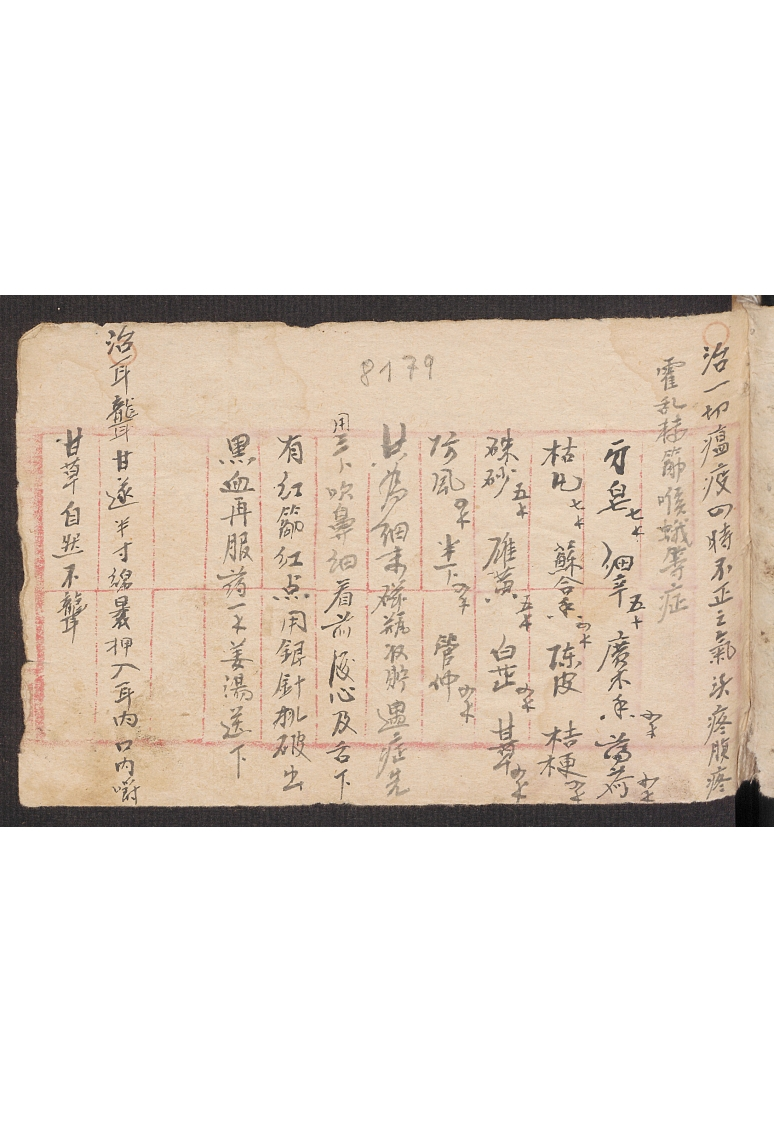 治一切瘟疫四時不正之氣头疼腹疼
霍乱转筋喉蛾等症
牙皂七个 细辛五个 廣木香 薄荷
枯凡七 蘇合香 陈皮 桔梗
硃砂五 雄黄五 白芷 甘草
防風 半下 管仲
共为细末磁瓶收貯 遇症先
用三卜吹鼻细看前後心及舌下
有红筋红点用銀針挑破出
黑血再服药一 姜湯送下
治耳聾甘遂半寸綿裹押入耳内口内嚼
甘草自然不聾
8179